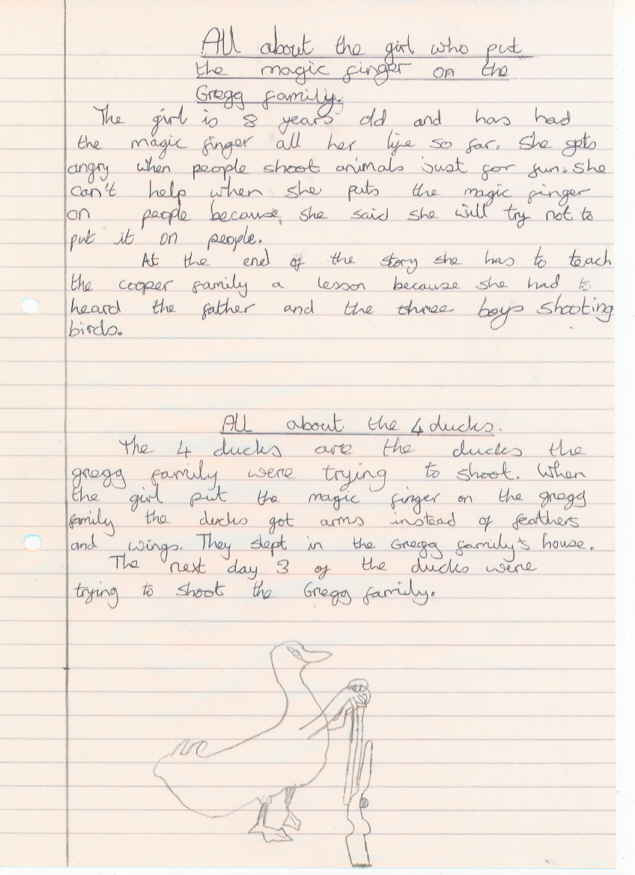 All about the girl who put
the magic finger on the
Gregg family.
The girl is 8 years old and has had
the magic finger all her life so far. She gets
angry when people shoot animals just for fun. She
can't help when she puts the magic finger
on people because she said she will try not to
put it on people.
At the end of the story she has to teach
the cooper family a lesson because she had to
heard the father and the three boys shooting
birds.
All about the 4 ducks.
The 4 ducks are the ducks the
gregg family were trying to shoot. When
the girl put the magic finger on the gregg
family the ducks got arms instead of feathers
and wings. They slept in the Gregg family's house.
The next day 3 of the ducks were
trying to shoot the Gregg family.